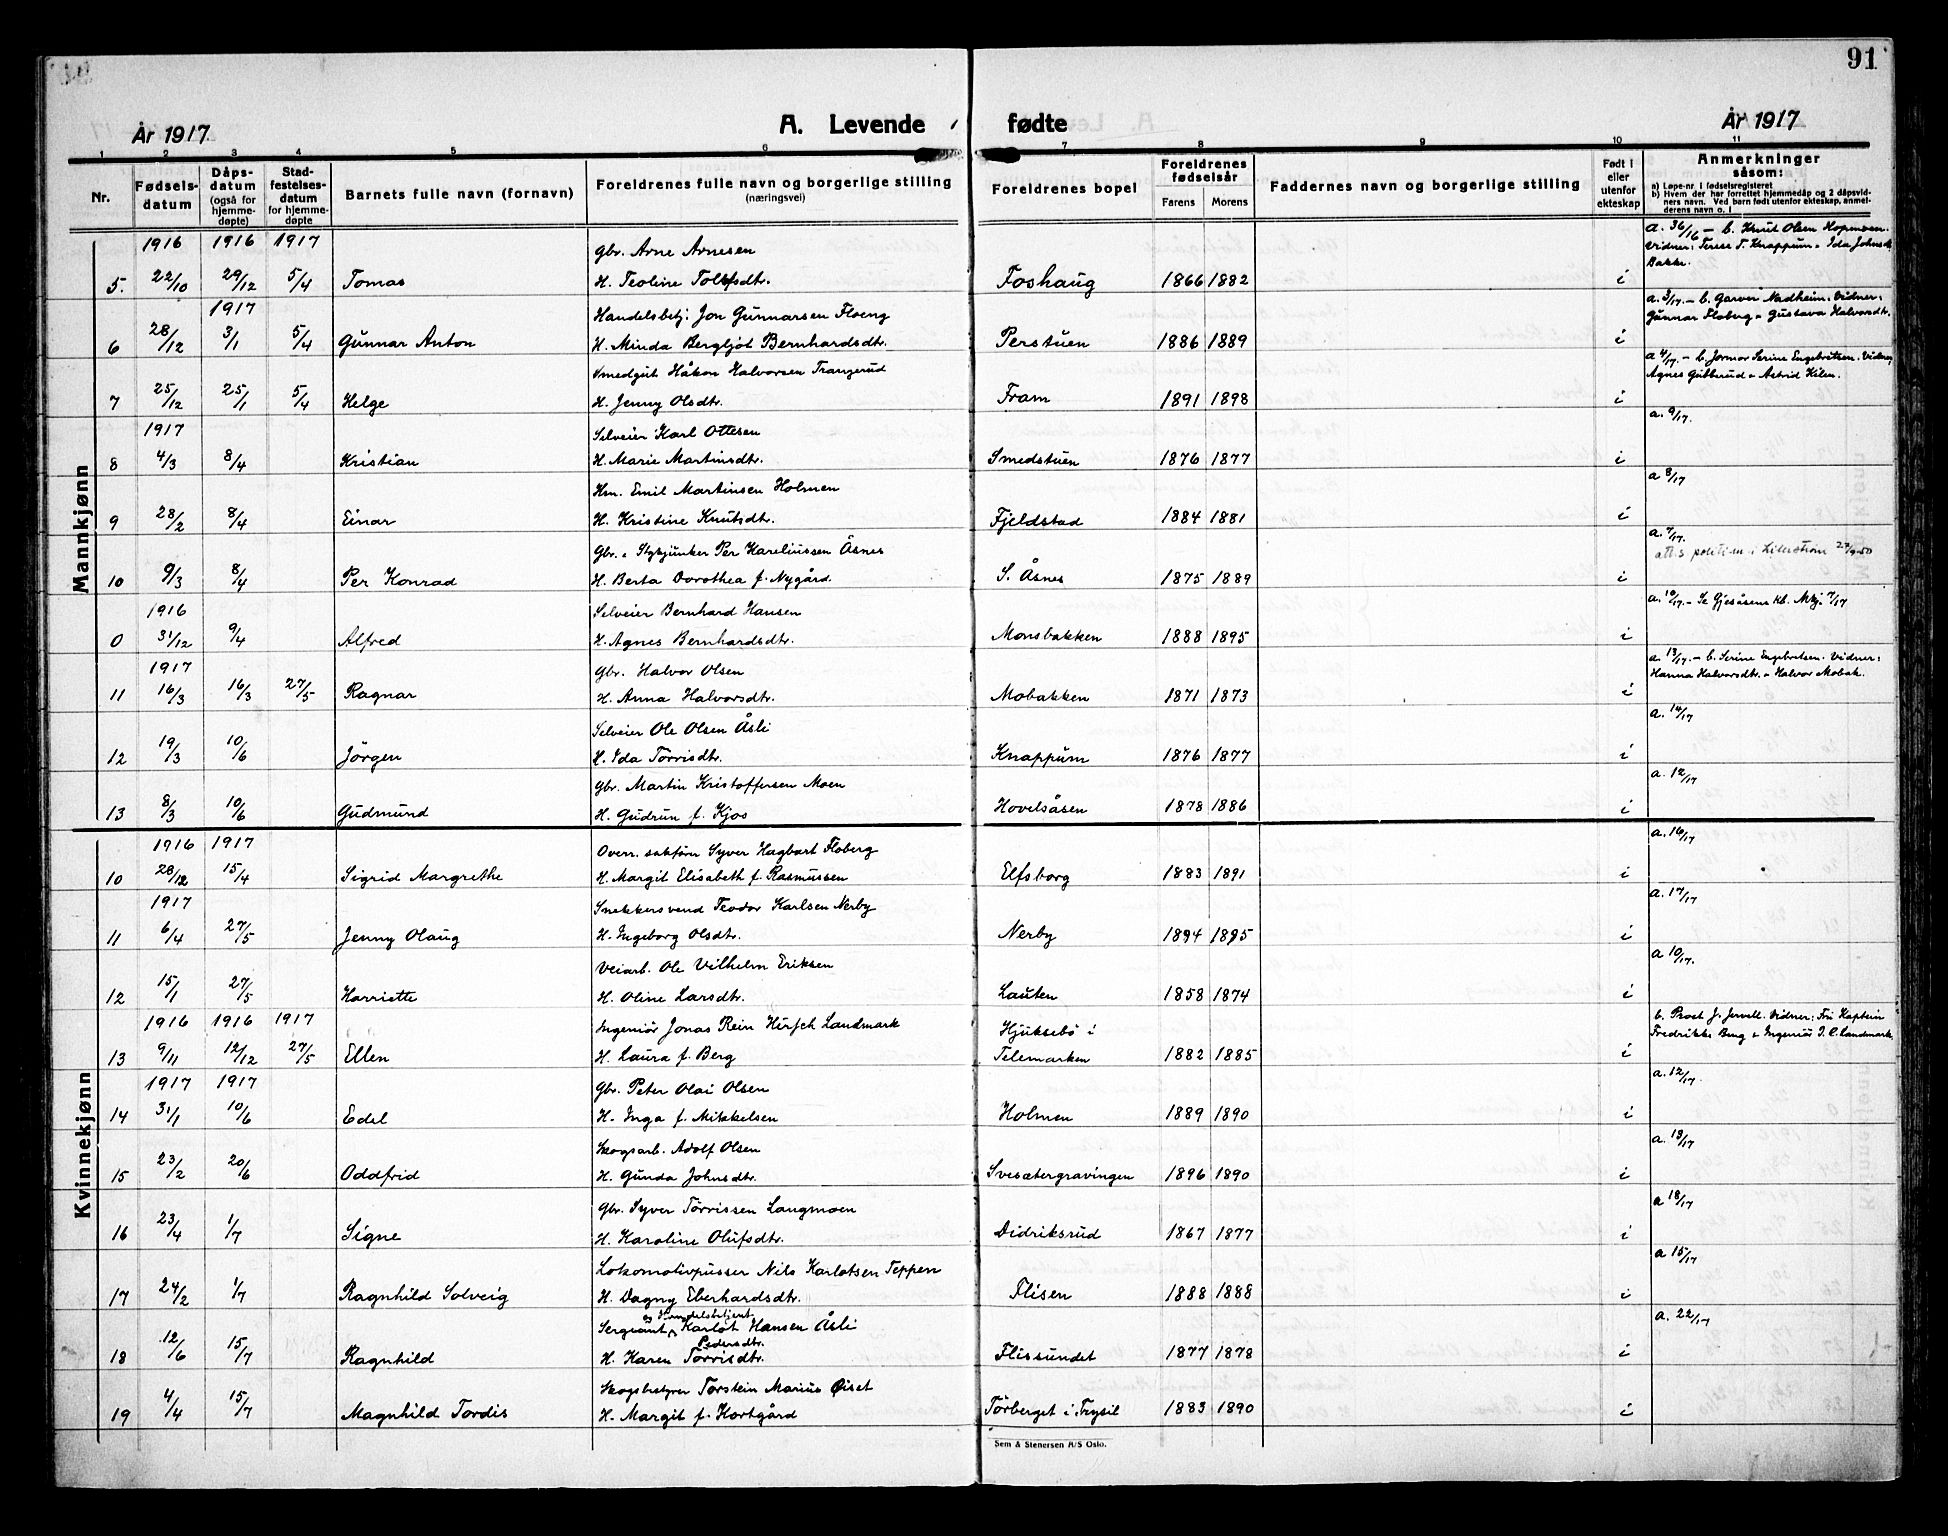 91
År 1917
A. Levende fødte
År 1917
1 2 3 4 5 6 7 8 9 10 11
Nr. Fødsels-datum Dåps-datum (også for hjemme-døpte) Stad-festelses-datum for hjemme-døpte Barnets fulle navn (fornavn) Foreldrenes fulle navn og borgerlige stilling (næringsvei) Foreldrenes bopel Foreldrenes fødselsår Farens Morens Faddernes navn og borgerlig stilling Født i eller utenfor ekteskap Anmerkninger såsom:
a) Løpe-nr. i fødselsregisteret
b) Hvem der har forrettet hjemmedåp og 2 dåpsvid-
ners navn. Ved barn født utenfor ekteskap, anmel-
derens navn o. l.
Mannkjønn
1916 1916 1917 Gbr. Arne Arnesen a. 36/16 – b. Knut Olsen Hopmoen.
Vidner: Terese T. Knappum & Ida Johnsd.
5. 22/10 29/12 5/4 Tomas H. Teoline Tollefsdtr. Foshaug 1866 1882 i Bakke.
1917 Handelsbetj. Jon Gunnarsen Floeng a. 3/17. – b. Garver Nadheim. Vidner:
6 28/12 3/1 5/4 Gunnar Anton H. Minda Bergljot Bernhardsdtr. Perstuen 1886 1889 i Gunnar Floberg & Gustava Halvorsdtr.
Smedgut Håkon Halvorsen Trangerud a 4/17. – b. Jormor Serine Engebretsen. Vidner,
7 25/12 25/1 5/4 Helge H. Jenny Olsdtr. Fram 1891 1898 i Agnes Gubberud & Astrid Kilen.
1917 Selveier Karl Ottesen a. 9/17.
8 4/3 8/4 Kristian H. Marie Martinsdtr. Smedstuen 1876 1877 i
Km. Emil Martinsen Holmen a 8/17
9 28/2 8/4 Einar H. Kristine Knutsdtr. Fjeldstad 1884 1881 i
Gbr. & Stykjunker Per Kareliussen Åsnes a. 7/17.
att. s politim. i Lillestrøm 22/9-50
10 9/3 8/4 Per Konrad H. Berta Dorothea f. Nygård. S. Åsnes 1875 1889 i
1916 Selveier Bernhard Hansen a. 10/17. – Se Gjesåsens kb. Mkj. 7/17
0 31/12 9/4 Alfred H. Agnes Bernhardsdtr. Monsbakken 1888 1895 i
1917 Gbr. Halvor Olsen a. 13/17. – b. Serine Engebretsen. Vidner:
11 16/3 16/3 27/5 Ragnar H. Anna Halvorsdtr. Mobakken 1871 1873 i Hanna Halvorsdtr. & Halvor Mobak.
Selveier Ole Olsen Åsli a. 14/17
12 19/3 10/6 Jörgen H. Ida Törrisdtr. Knappum 1876 1877 i
Gbr. Martin Kristoffersen Moen a. 12/17
13 8/3 10/6 Gudmund H. Gudrun f. Kjos Hovelsåsen 1878 1886 i
Kvinnekjønn
1916 1917 Overr. sakfører Syver Hagbart Floberg a. 16/17
10 28/12 15/4 Sigrid Margrethe H. Margit Elisabeth f. Rasmussen Elfsborg 1883 1891 i
1917 Snekkersvend Teodor Karlsen Nerby a. 17/17
11 6/4 27/5 Jenny Olaug H. Ingeborg Olsdtr. Nerby 1894 1895 i
Veiarb. Ole Vilhelm Eriksen a 10/17.
12 15/1 27/5 Harriette H. Oline Larsdtr. Lauten 1858 1874 i
1916 1916 1917 Ingeniör Jonas Rein Hirsch Landmark Hjuksebö i b. Prost J. Jervell. Vidner: Fru Kaptein
13 9/11 12/12 27/5 Ellen H. Laura f. Berg Telemarken 1882 1885 i Fredrikke Berg & Ingeniör J. C. Landmark.
1917 1917 Gbr. Peter Olai Olsen a. 12/17
14 31/1 10/6 Edel H. Inga f. Mikkelsen Holmen 1889 1890 i
Skogsarb. Adolf Olsen a. 13/17
15 23/2 20/6 Oddfrid H. Gunda Johnsdtr. Svesætergravingen 1896 1890 i
Gbr. Syver Törrissen Langmoen a 18/17
16 23/4 1/7 Signe H. Karoline Olufsdtr. Didriksrud 1867 1877 i
Lokomotivpusser Nils Karlotsen Teppen a 15/17
17 24/2 1/7 Ragnhild Solveig H. Dagny Eberhardsdtr. Flisen 1888 1888 i
og Handelsbetjent
Sergeant, Karlot Hansen Åsli a. 22/17
Pedersdtr.
18 12/6 15/7 Ragnhild H. Karen Törrisdtr. Flissundet 1877 1878 i
Skogbetyrer Torstein Marius Öiset
19 4/4 15/7 Magnhild Tordis H. Margit f. Kortgård Törberget i Trysil 1883 1890 i
Sem & Stenersen A/S Oslo.